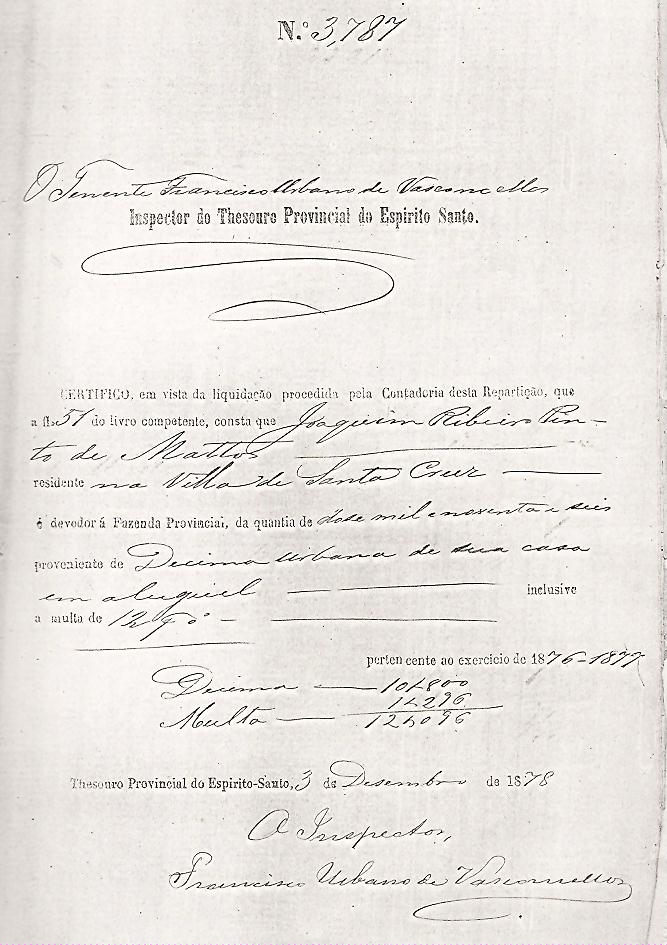 N.º 3,787
O Tenente Francisco Urbano de Vasconcellos
Inspector do Thesouro Provincial do Espirito Santo.
CERTIFICO, em vista da liquidação procedida pela Contadoria desta Repartição, que
a fl. 51 do livro competente, consta que Joaquim Ribeiro Pin-
to de Mattos
residente na Villa de Santa Cruz
é devedor á Fazenda Provincial, da quantia de dose mil e noventa e seis
proveniente de Decima Urbana de sua casa
em aluguel inclusive
a multa de 12 %
pertencente ao exercicio de 1876-1877
Decima 10$800
1$296
Multa 12$096
Thesouro Provincial do Espirito-Santo, 3 de Desembro de 1878
O Inspector,
Francisco Urbano de Vasconcellos